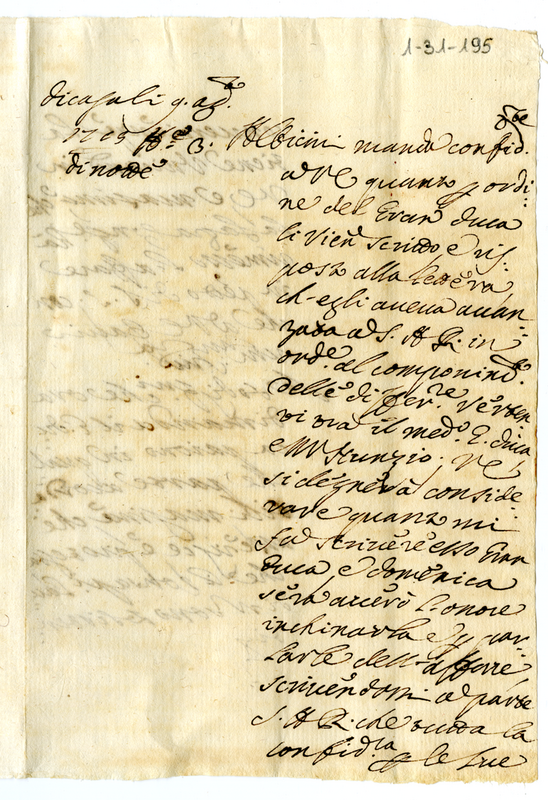 1-31-195
di casa li 9. ag.to
1705 N.o 3.
di notte
Albicini manda confid.te
a VE quanto p ordi-
ne del Gran Duca
li vien scritto e ris-
posto alla lettera
ch'egli aveva avan-
zata a S. A. R. in
ord.e al componim.to
delle differ.ze
vi tra il med.o G. Duca
e M.r Nunzio. VE
si degnerà conside-
rare quanto mi
fa scrivere esso Gran
Duca e domenica
sera averò l'onore
inchinarla e p par-
larle dell'affare
scrivendomi a parte
S. A. R. che tutta la
confid.za p le sue